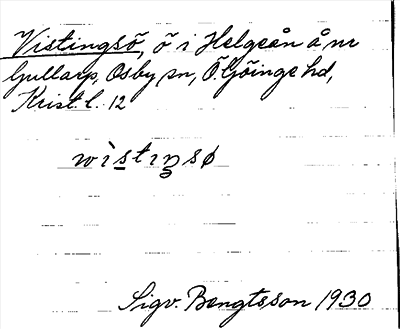 Vistingsö, ö i Helgeån å nr
Gullarp, Osby sn, Ö. Göinge hd,
Krist. l. 12
wìstiŋsø
Sigv. Bengtsson 1930